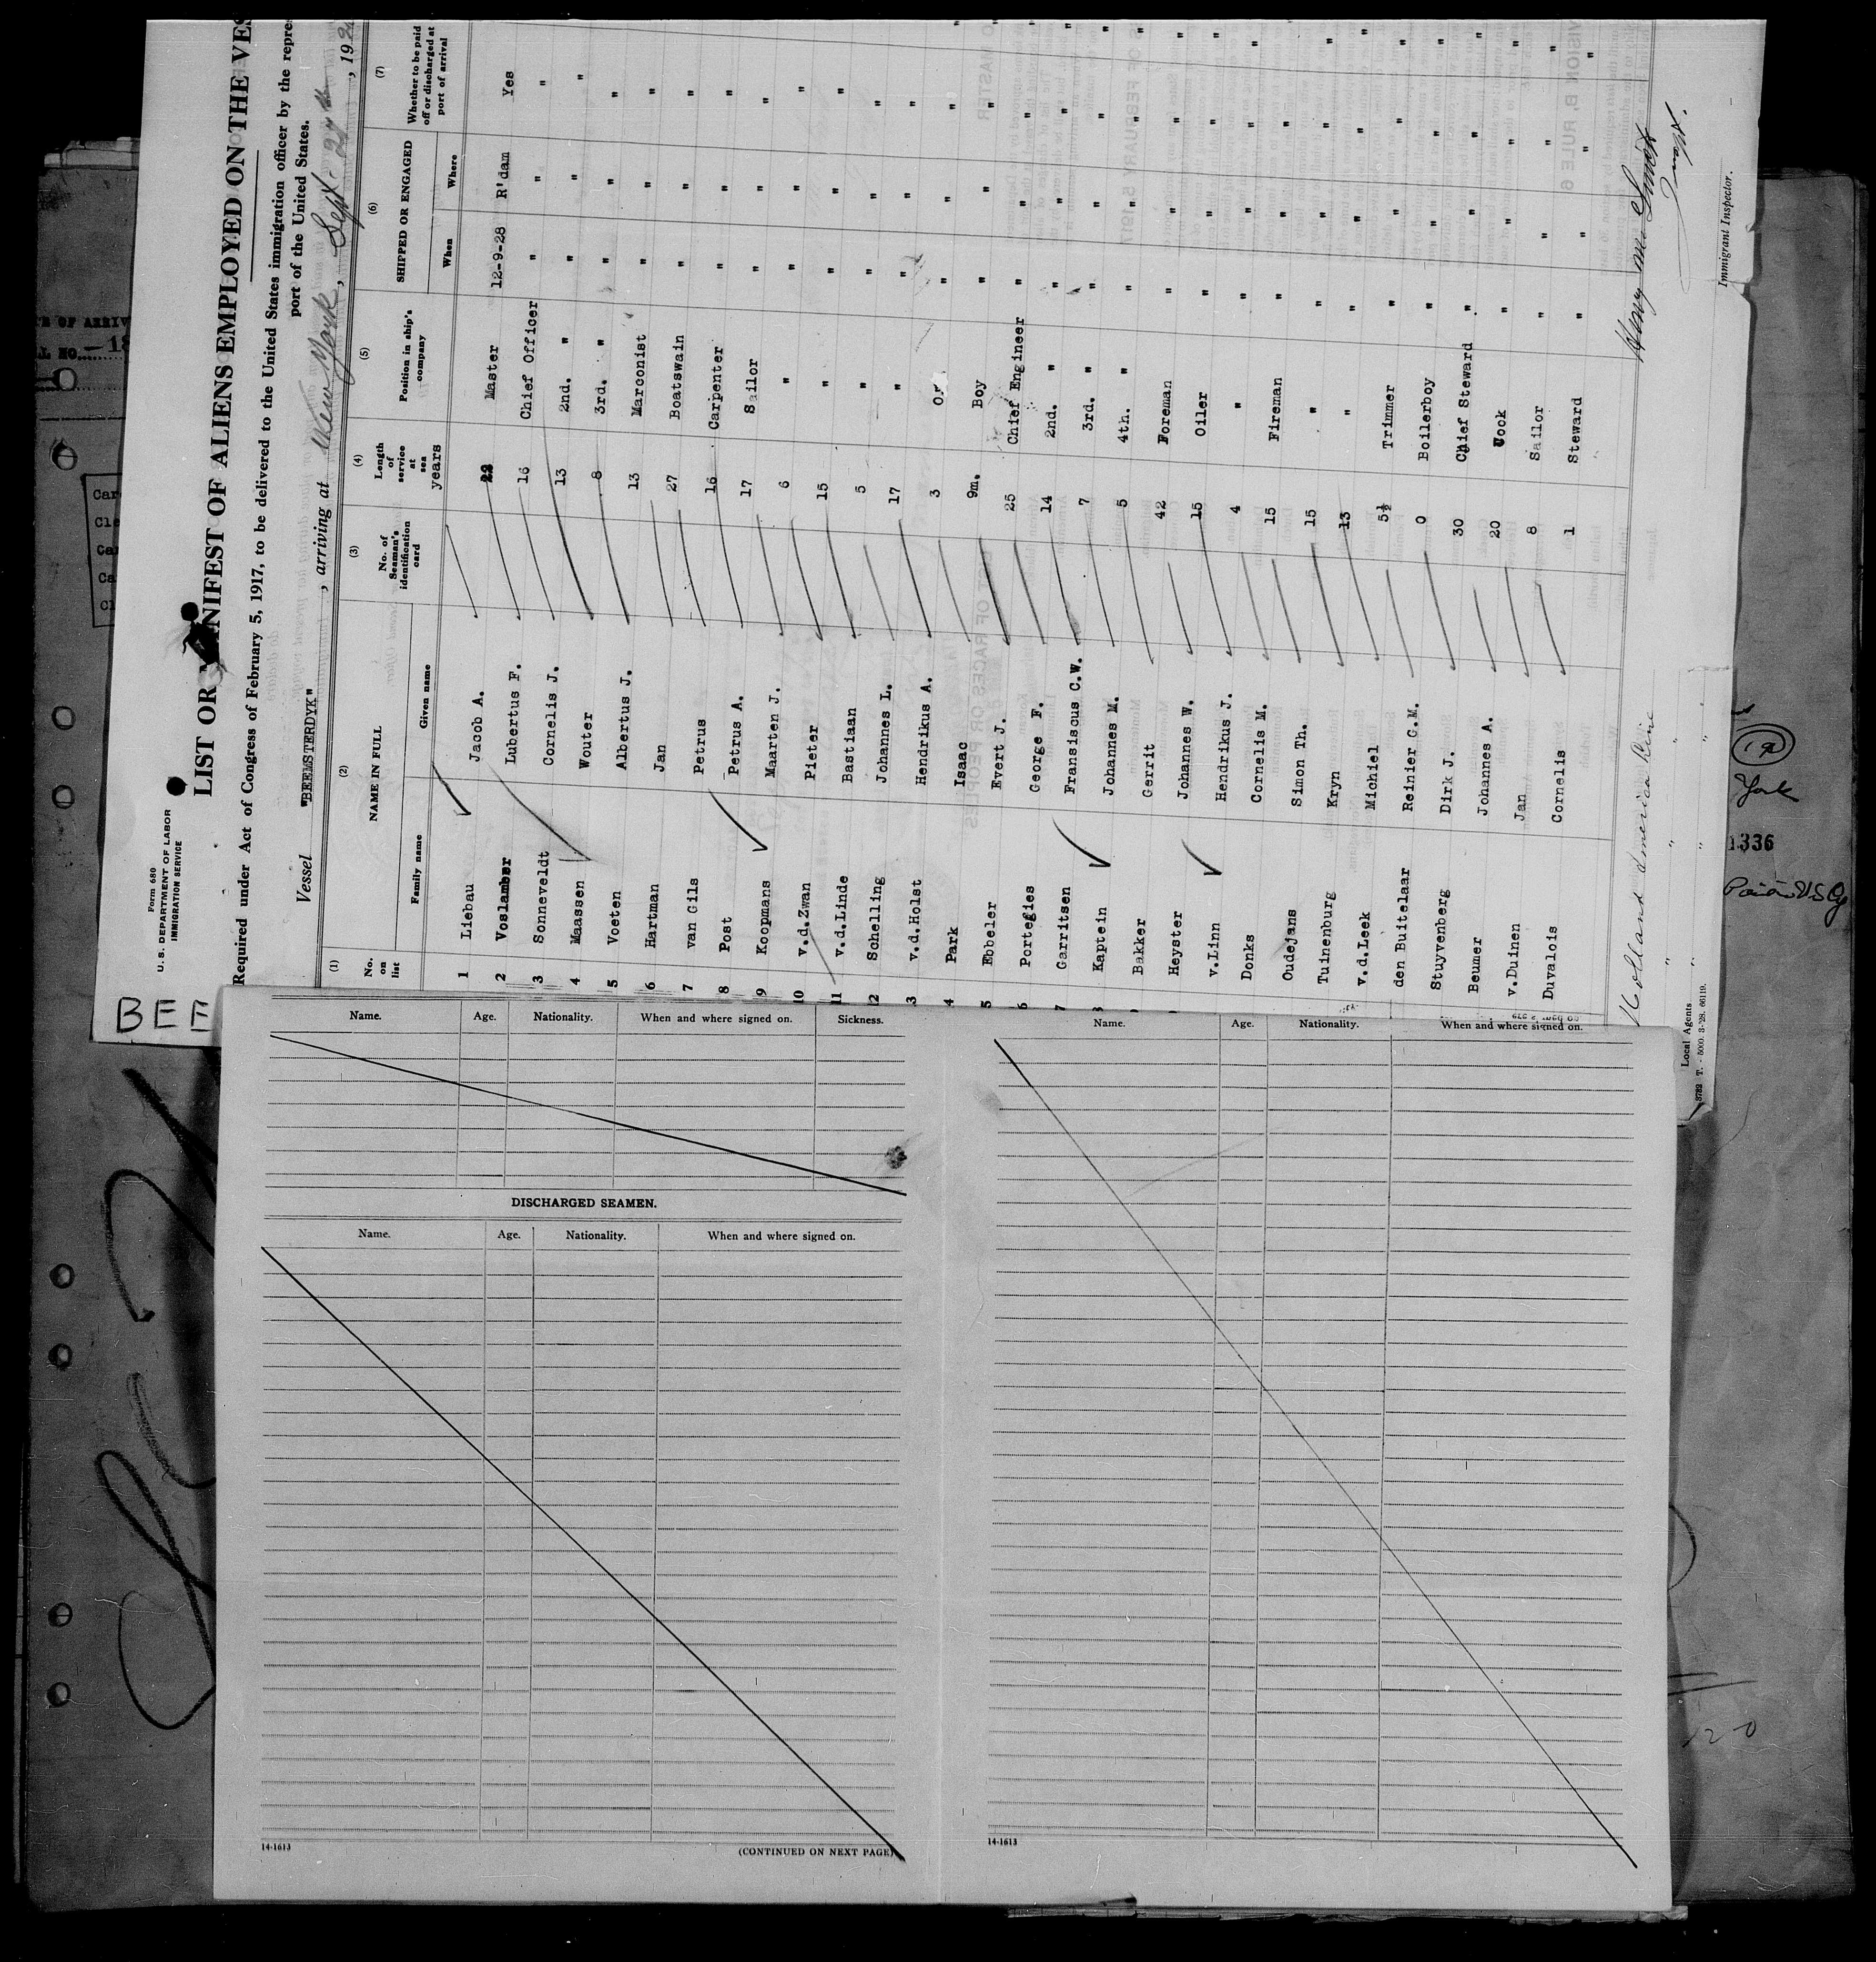 Form 680
U. S. DEPARTMENT OF LABOR
IMMIGRATION SERVICE
LIST OR MANIFEST OF ALIENS EMPLOYED ON THE VES
Required under Act of Congress of February 5, 1917, to be delivered to the United States immigration officer by the repre
port of the United States.
Vessel "BEEMSTERDYK", arriving at New York, Sept. 24th, 192
(1) (2) (3) (4) (5) (6) (7)
No. on list NAME IN FULL No. of Seaman's identification card Length of service at sea Position in ship's company SHIPPED OR ENGAGED Whether to be paid off or discharged at port of arrival
Family name Given name years When Where
1 Liebau Jacob A. 22 Master 12-9-28 R'dam Yes
2 Voslamber Lubertus F. 16 Chief Officer " " "
3 Sonneveldt Cornelis J. 13 2nd. " " " "
4 Maassen Wouter 8 3rd. " " " "
5 Voeten Albertus J. 13 Marconist " " "
6 Hartman Jan 27 Boatswain " " "
7 van Gils Petrus 16 Carpenter " " "
8 Post Petrus A. 17 Sailor " " "
9 Koopmans Maarten J. 6 " " " "
10 v.d.Zwan Pieter 15 " " " "
11 v.d.Linde Bastiaan 5 " " " "
12 Schelling Johannes L. 17 " " " "
3 v.d.Holst Hendrikus A. 3 " " "
4 Park Isaac 9m. Boy " " "
5 Ebbeler Evert J. 25 Chief Engineer " " "
6 Portegies George F. 14 2nd. " " " "
7 Garritsen Fransiscus C.W. 7 3rd. " " " "
8 Kaptein Johannes M. 5 4th. " " " "
Bakker Gerrit 42 Foreman " " "
Heyster Johannes W. 15 Oiler " " "
v.Linn Hendrikus J. 4 " " " "
Donks Cornelis M. 15 Fireman " " "
Oudejans Simon Th. 15 " " " "
Tuinenburg Kryn 13 " " " "
v.d.Leek Michiel 5½ Trimmer " " "
den Buitelaar Reinier G.M. 0 Boilerboy " " "
Stuyvenberg Dirk J. 30 Chief Steward " " "
Beumer Johannes A. 20 Cook " " "
v.Duinen Jan 8 Sailor " " "
Duvalois Cornelis 1 Steward " " "
Holland America Line
Local Agents
3782 T. - 5000. 3-'28. 66119.
Immigrant Inspector.
BEE
Name. Age. Nationality. When and where signed on. Sickness.
DISCHARGED SEAMEN.
Name. Age. Nationality. When and where signed on.
14-1613
(CONTINUED ON NEXT PAGE)
Name. Age. Nationality. When and where signed on.
14-1613
York
1336